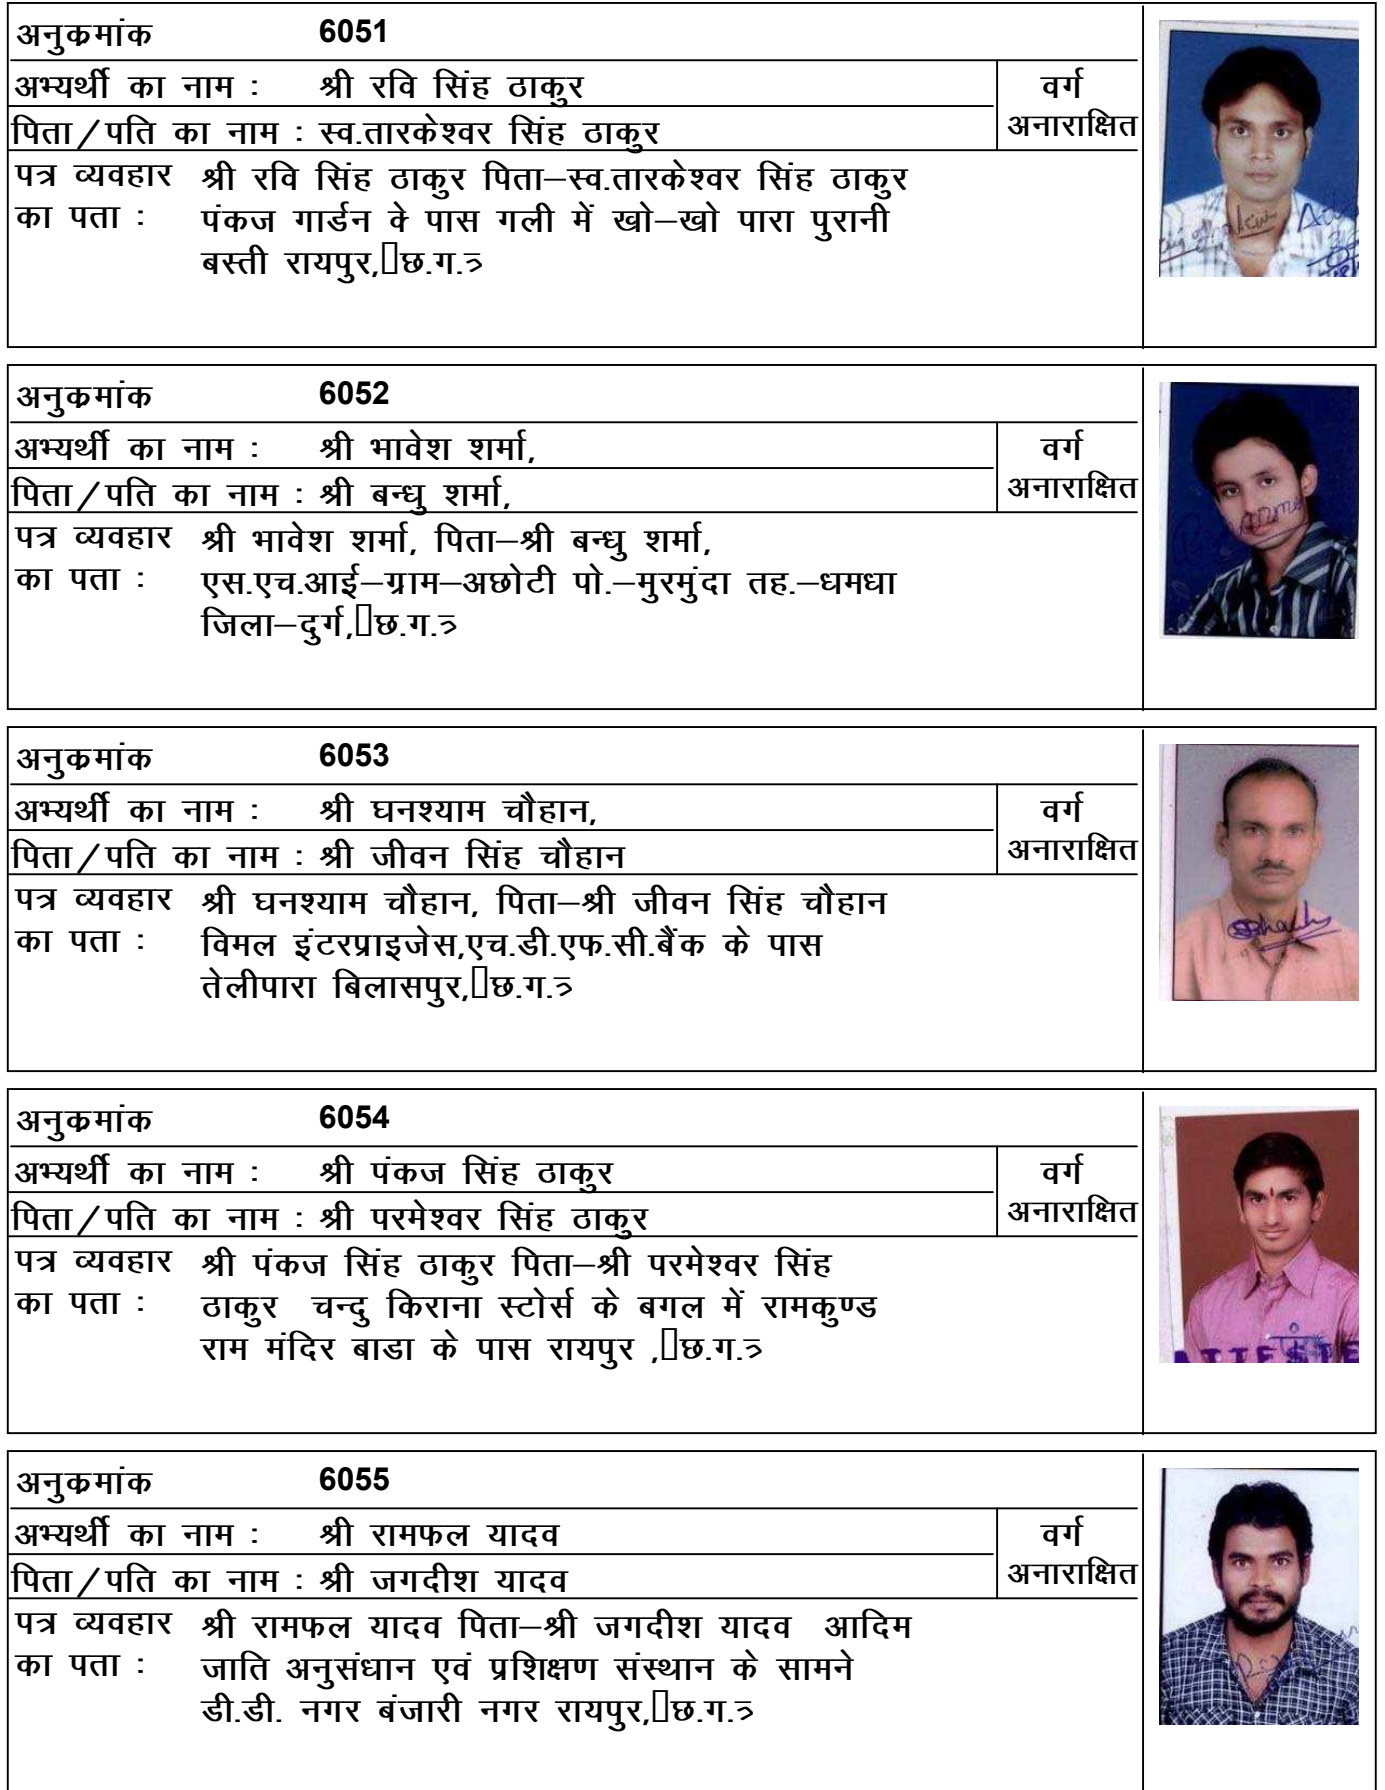 अनुक्रमांक 6051
अभ्यर्थी का नाम : श्री रवि सिंह ठाकुर वर्ग
पिता/पति का नाम : स्व.तारकेश्वर सिंह ठाकुर अनाराक्षित
पत्र व्यवहार श्री रवि सिंह ठाकुर पिता–स्व.तारकेश्वर सिंह ठाकुर
का पता : पंकज गार्डन के पास गली में खो–खो पारा पुरानी
बस्ती रायपुर,छ.ग.त्र
अनुक्रमांक 6052
अभ्यर्थी का नाम : श्री भावेश शर्मा, वर्ग
पिता/पति का नाम : श्री बन्धु शर्मा, अनाराक्षित
पत्र व्यवहार श्री भावेश शर्मा, पिता–श्री बन्धु शर्मा,
का पता : एस.एच.आई–ग्राम–अछोटी पो.–मुरमुंदा तह.–धमधा
जिला–दुर्ग,छ.ग.त्र
अनुक्रमांक 6053
अभ्यर्थी का नाम : श्री घनश्याम चौहान, वर्ग
पिता/पति का नाम : श्री जीवन सिंह चौहान अनाराक्षित
पत्र व्यवहार श्री घनश्याम चौहान, पिता–श्री जीवन सिंह चौहान
का पता : विमल इंटरप्राइजेस,एच.डी.एफ.सी.बैंक के पास
तेलीपारा बिलासपुर,छ.ग.त्र
अनुक्रमांक 6054
अभ्यर्थी का नाम : श्री पंकज सिंह ठाकुर वर्ग
पिता/पति का नाम : श्री परमेश्वर सिंह ठाकुर अनाराक्षित
पत्र व्यवहार श्री पंकज सिंह ठाकुर पिता–श्री परमेश्वर सिंह
का पता : ठाकुर चन्दु किराना स्टोर्स के बगल में रामकुण्ड
राम मंदिर बाडा के पास रायपुर ,छ.ग.त्र
अनुक्रमांक 6055
अभ्यर्थी का नाम : श्री रामफल यादव वर्ग
पिता/पति का नाम : श्री जगदीश यादव अनाराक्षित
पत्र व्यवहार श्री रामफल यादव पिता–श्री जगदीश यादव आदिम
का पता : जाति अनुसंधान एवं प्रशिक्षण संस्थान के सामने
डी.डी. नगर बंजारी नगर रायपुर,छ.ग.त्र